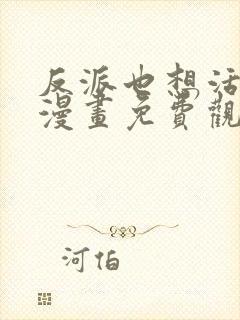 反派也想活
漫畫免費觀
河伯